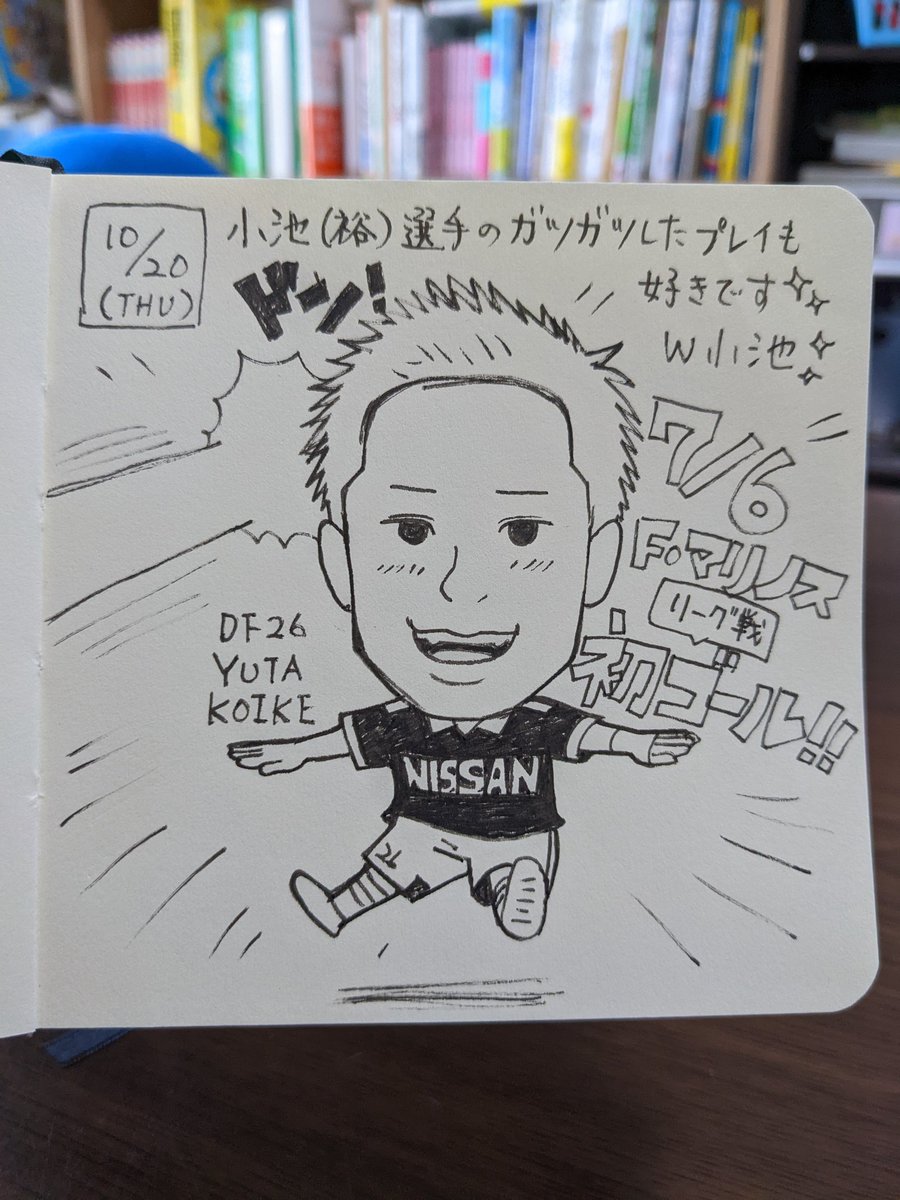 10/20
(THU)
小池(裕)選手のガツガツしたプレイも
好きです
W小池
ドン!
7/6
F・マリノス
リーグ戦
初ゴール!!
DF26
YUTA
KOIKE
NISSAN
26